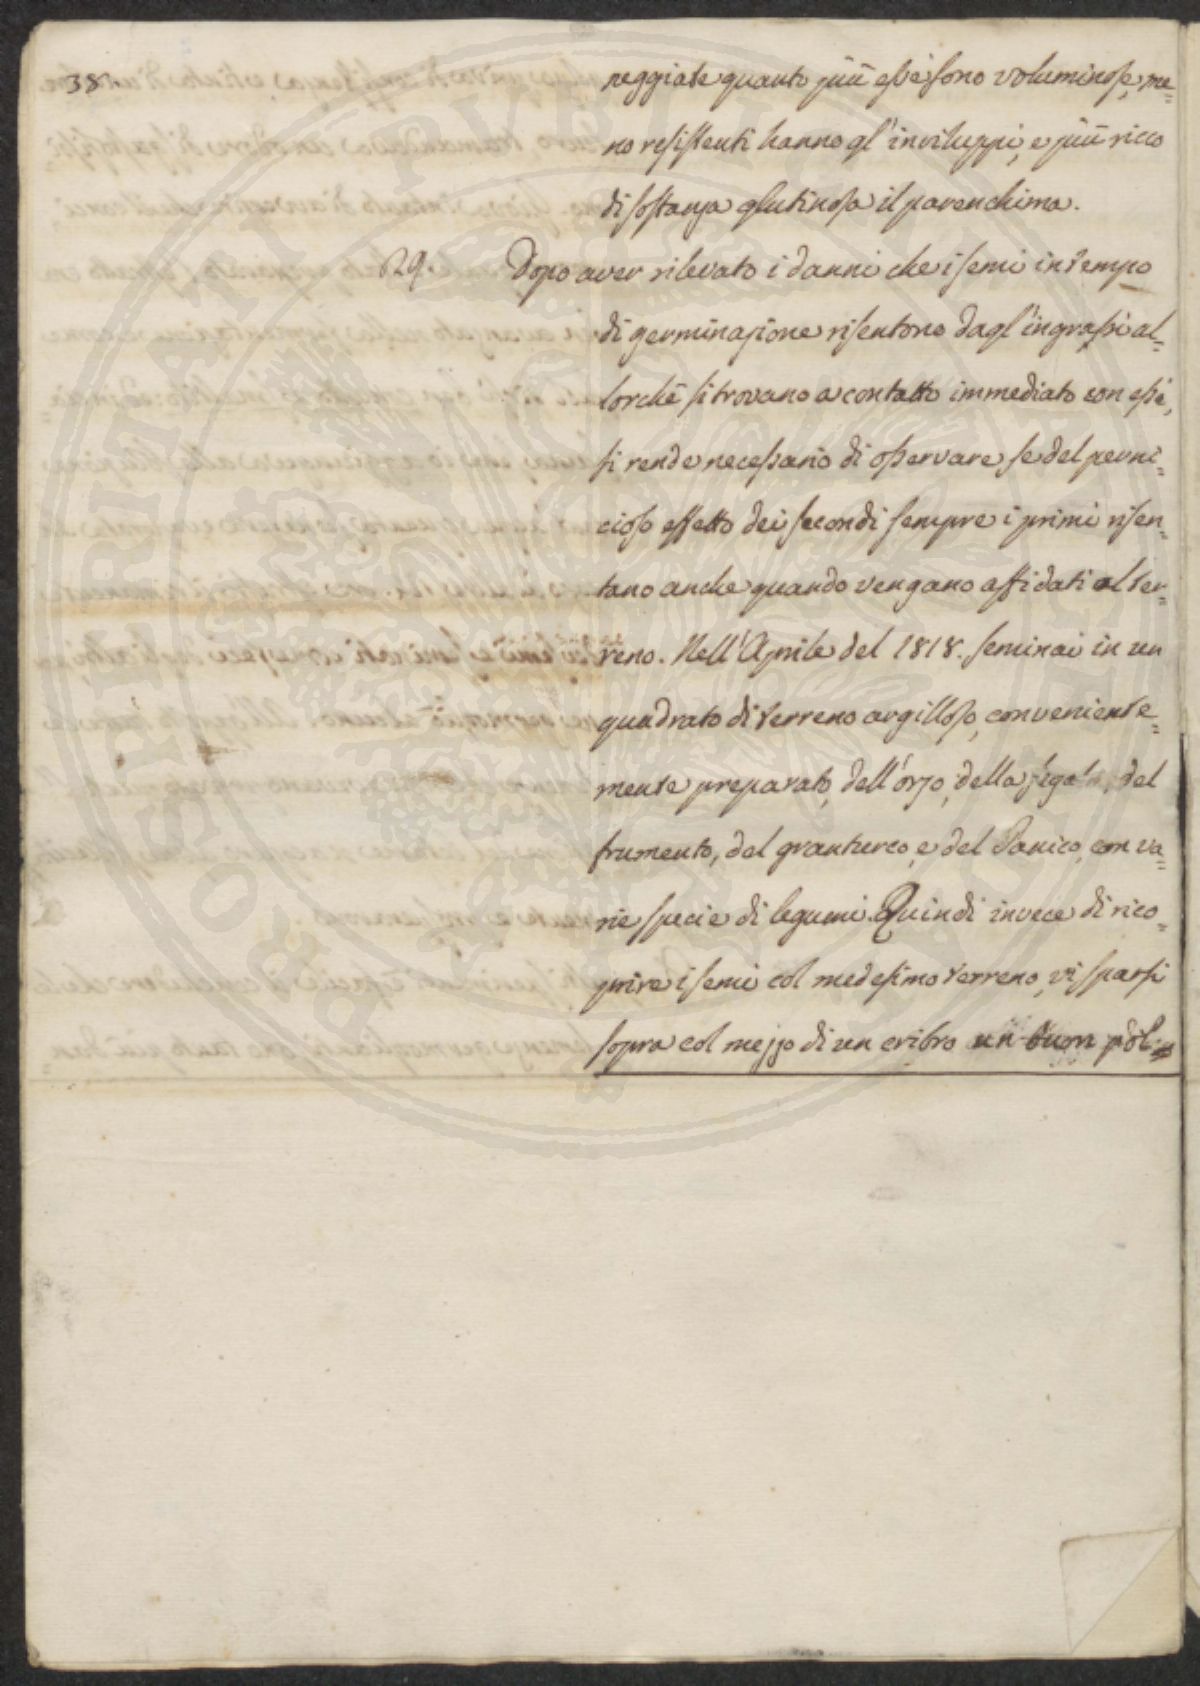 38.
neggiate quanto più esse sono voluminose, me=
no resistenti hanno gl'inviluppi, e più ricco
di sostanza glutinosa il parenchima.
29. Dopo aver rilevato i danni che i semi in tempo
di germinazione risentono dagl'ingrassi al=
lorchè si trovano a contatto immediato con essi,
si rende necessario di osservare se del perni=
cioso effetto dei secondi sempre i primi risen=
tano anche quando vengano affidati al ter=
reno. Nell'Aprile del 1818. seminai in un
quadrato di terreno argilloso, conveniente=
mente preparato, dell'orzo, della segala, del
frumento, del granturco, e del Panico, con va=
rie specie di legumi. Quindi invece di rico=
prire i semi col medesimo terreno, vi sparsi
sopra col mezzo di un cribro un buon pol=
PROSPERITATI PVBLICAE